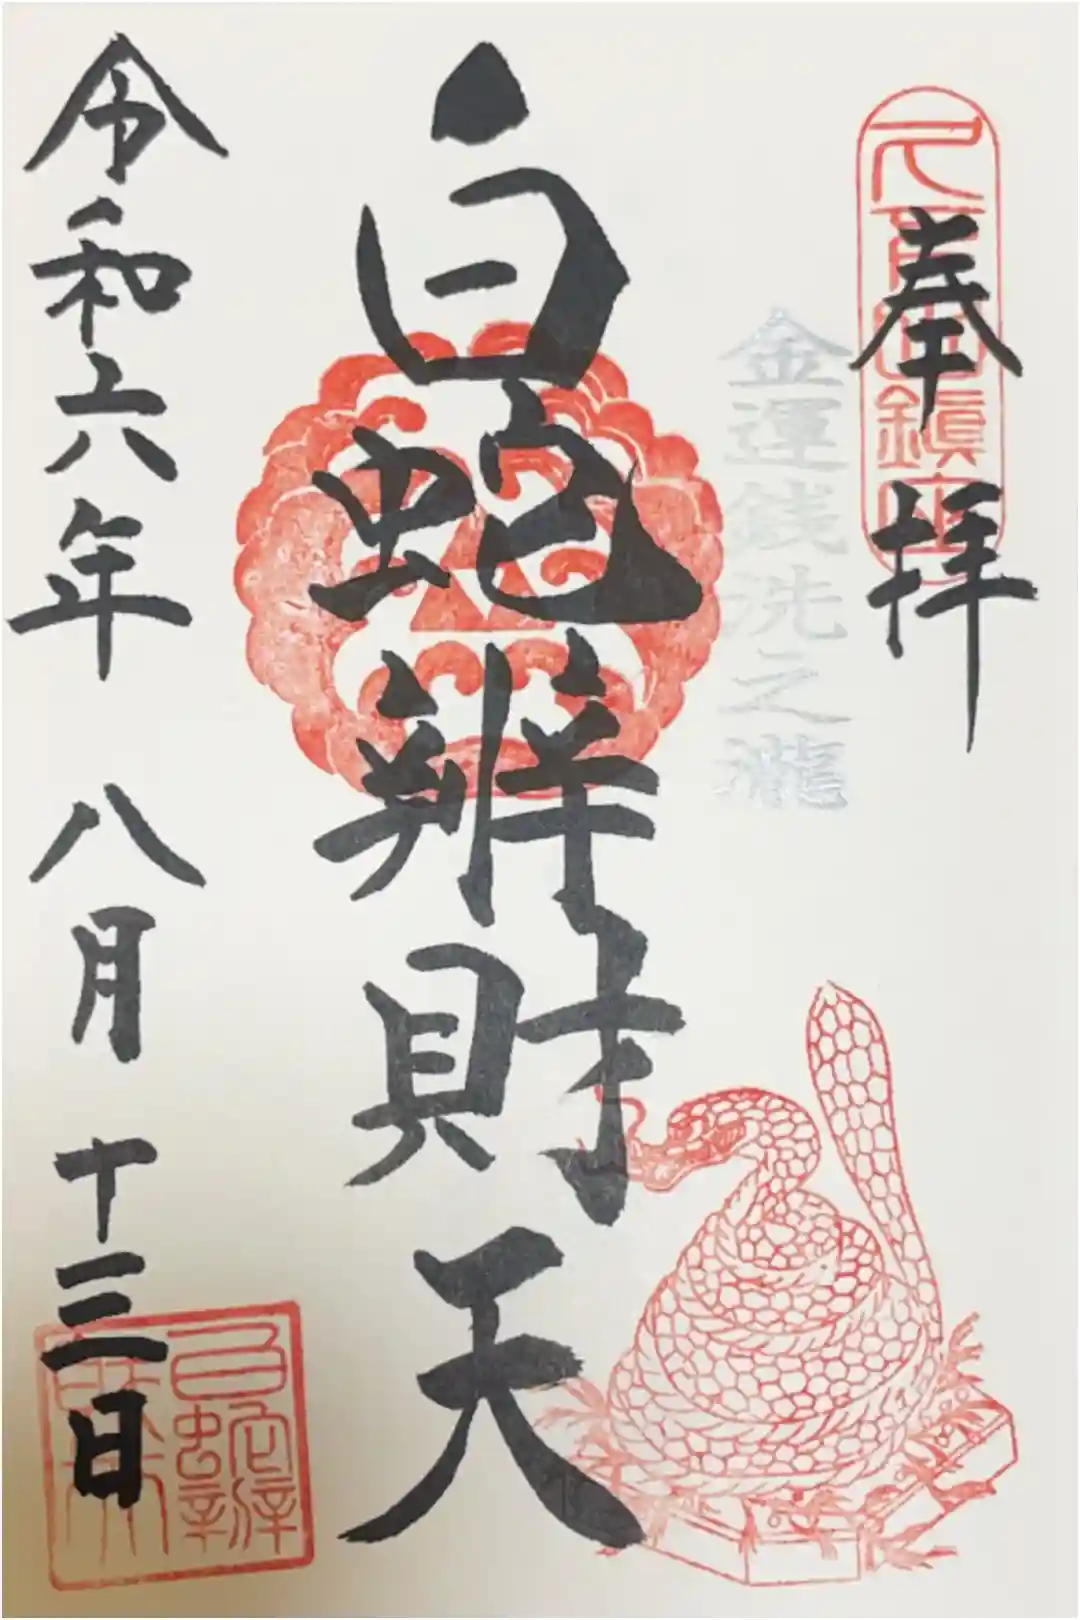 奉拝
鎭座
金運銭洗之瀧
白蛇辨財天
令和六年 八月 十三日
白蛇辨
財天